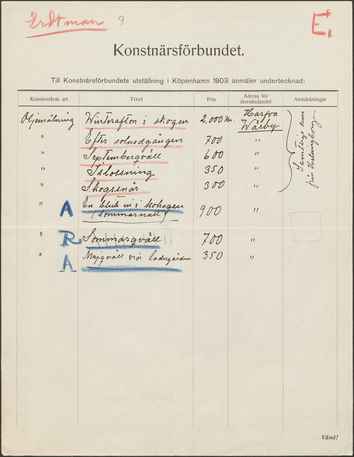 Erdtman 9. E.
Konstnärsförbundet.
Till Konstnärsförbundets utställning i Köpenhamn 1903 anmäler undertecknad:
Konstverkets art. Titel Pris Adress för återsändandet Anmärkningar
Oljemålning Vinterafton i skogen 2,000 kr. Harfva Wårby
" Efter solnedgången 700 "
" Septemberqväll 600 "
" Islossning 350 "
" Skogssnår 300 "
" A En blick in i kohagen (sommarnatt) 900 "
" R Sommarqväll 700 "
" A Majqväll vid Ladugården 350 "
Samtliga
från Helsingborg
Vänd!